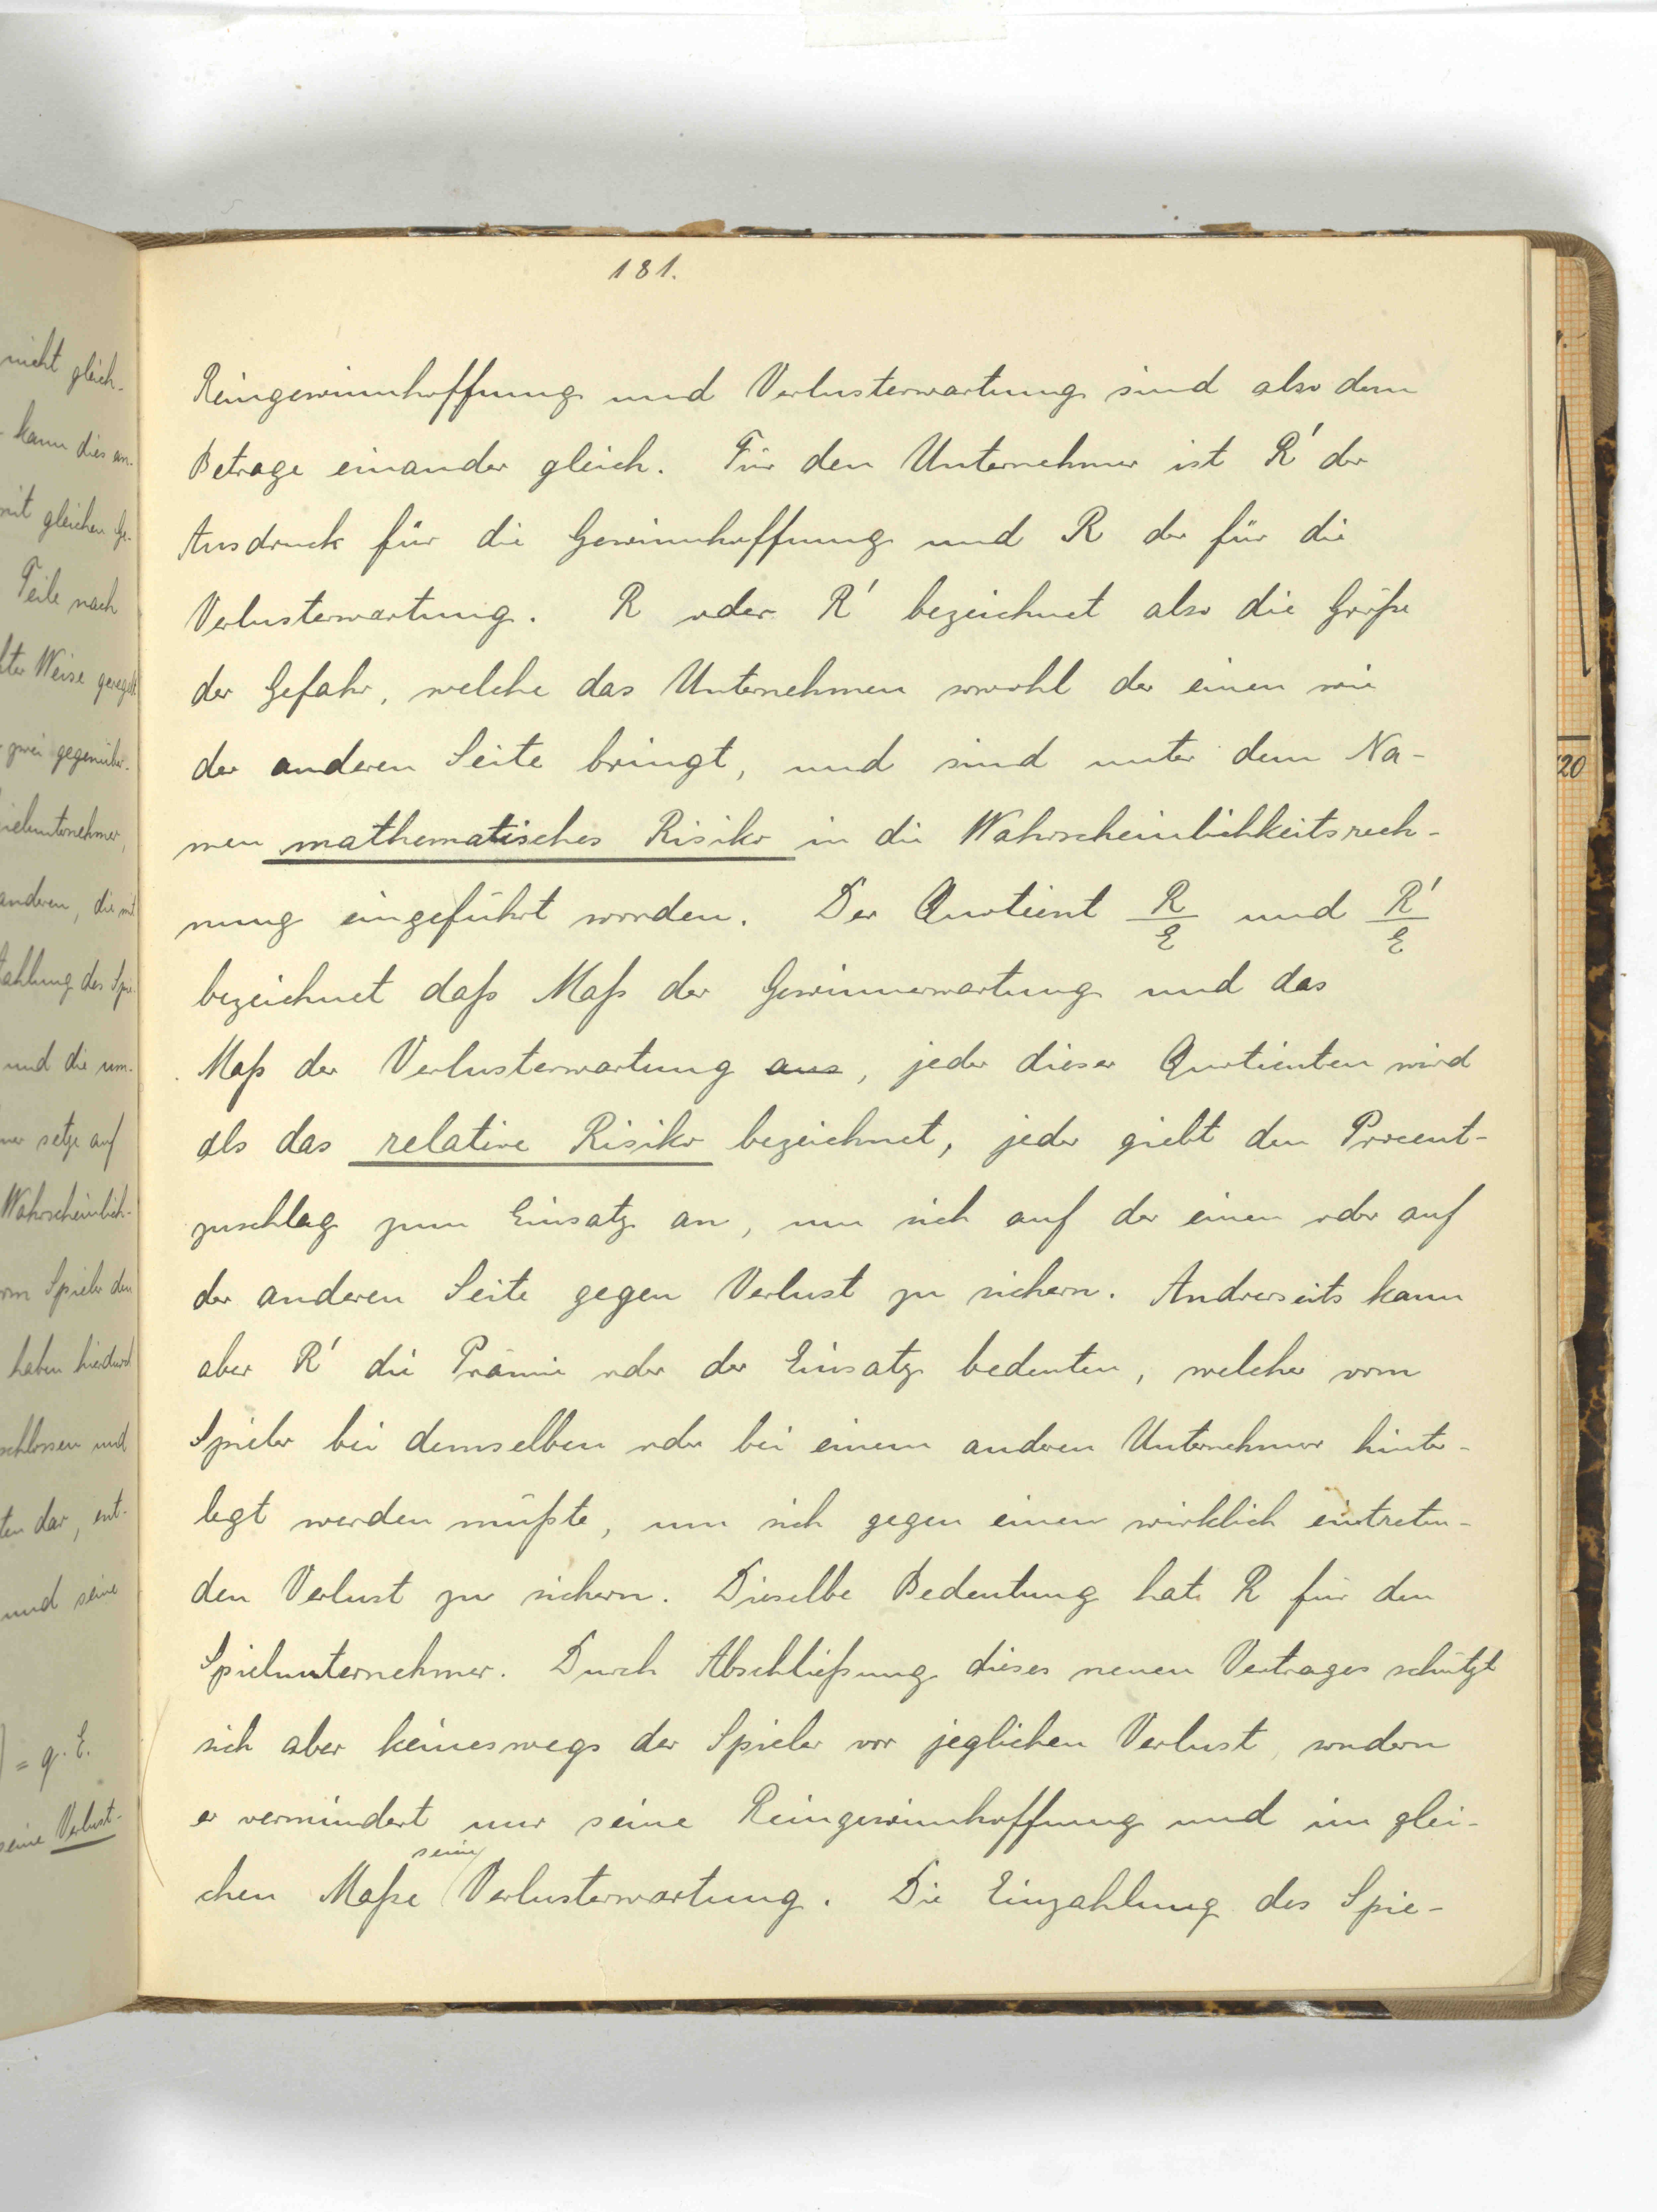 181.
Reingewinnhoffnung und Verlusterwartung sind also dem
Betrage einander gleich. Für den Unternehmer ist R' der
Ausdruck für die Gewinnhoffnung und R der für die
Verlusterwartung. R oder R' bezeichnet also die Größe
der Gefahr, welche das Unternehmen sowohl der einen wie
der anderen Seite bringt, und sind unter dem Na-
men mathematisches Risiko in die Wahrscheinlichkeitsrech-
nung eingeführt worden. Der Quotient R/E und R'/E
bezeichnet daß Maß der Gewinnerwartung und das
Maß der Verlusterwartung aus, jeder dieser Quotienten wird
als das relative Risiko bezeichnet, jeder giebt den Procent-
zuschlag zum Einsatz an, um sich auf der einen oder auf
der anderen Seite gegen Verlust zu sichern. Andrerseits kann
aber R' die Prämie oder der Einsatz bedeuten, welcher vom
Spieler bei demselben oder bei einem anderen Unternehmer hinter-
legt werden müßte, um sich gegen einen wirklich eintreten-
den Verlust zu sichern. Dieselbe Bedeutung hat R für den
Spielunternehmer. Durch Abschließung dieses neuen Vertrages schützt
sich aber keineswegs der Spieler vor jeglichen Verlust, sondern
er vermindert nur seine Reingewinnhoffnung und im glei-
chen Maße seine Verlusterwartung. Die Einzahlung des Spie-
nicht gleich-
kann dies an-
mit gleichen Ge-
Teile nach
Weise geregelt
zwei gegenüber-
ielunternehmer,
anderen, die mit
zahlung des Spie-
und die um-
setze auf
Wahrscheinlich-
vom Spieler den
haben hierdurch
schlossen und
ten dar, ent-
und seine
) = q. E.
seine Verlust-
20